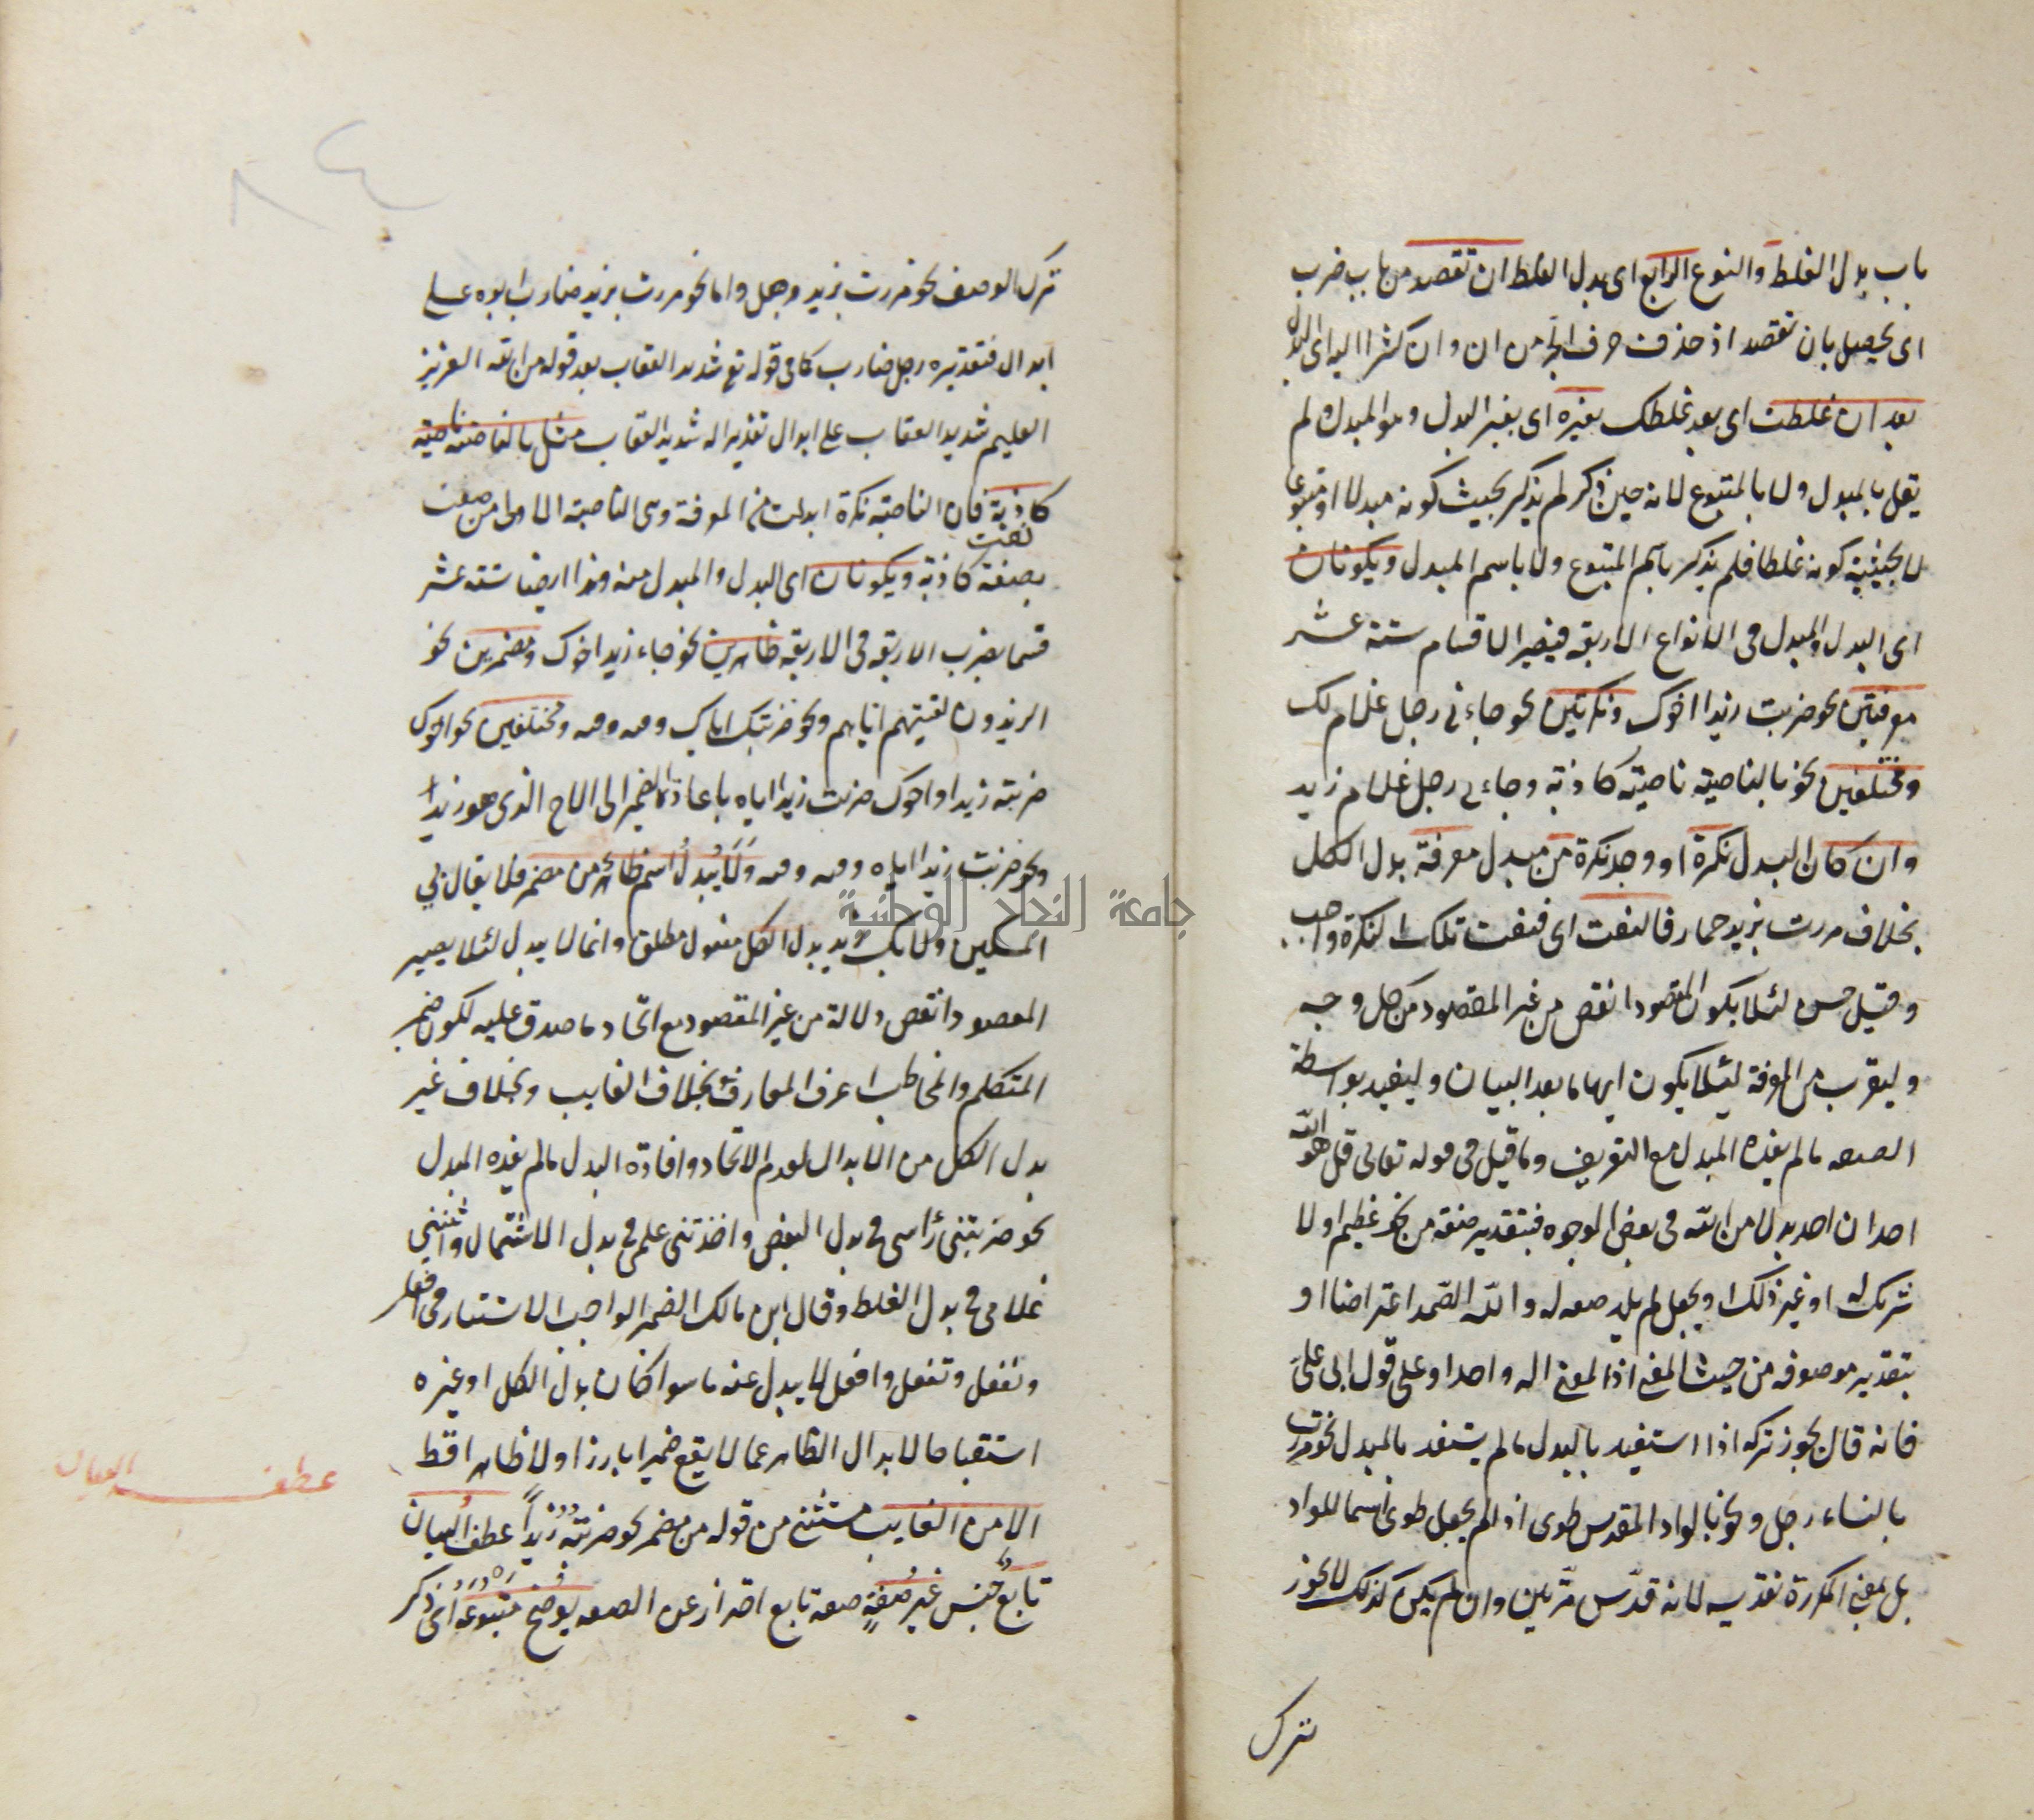 باب بدل الغلط والنوع الرابع اى بدل الغلط ان تقصد من باب ضرب
اى يحصل بان تقصد اذ حذف حرف الجر من ان وان كثير اليه اى البدل
بعد ان غلطت اى بعد غلطك بغيره اى بغير البدل وهو المبدل لم
يقل بالمبدل ولا بالمتبوع لانه حين ذكر لم يذكر بحيث كونه مبدلا او متبوعا
لا بحيثية كونه غلطا فلم يذكر باسم المتبوع ولا باسم المبدل ويكونان
اى البدل والمبدل فى الانواع الاربعة فيصير الاقسام ستة عشر
معرفتين نحو ضربت زيدا اخوك ونكرتين نحو جاءنى رجل غلام لك
ومختلفين نحو بالناصية ناصية كاذبة وجاءنى رجل غلام زيد
وان كان البدل نكرة او وجد نكرة من مبدل معرفة بدل الكل
بخلاف مررت بزيد حمار فالنعت اى فنعت تلك النكرة واجب
وقيل حسن لئلا يكون المقصود انقص من غير المقصود من كل وجه
وليقرب من المعرفة لئلا يكون ابهاما بعد البيان وليفيد بواسطة
الصفة ما لم يفده المبدل مع التعريف وما قيل فى قوله تعالى قل هو الله
احد ان احد بدل من الله فى بعض الوجوه فبتقدير صفة من نحو عظيم او لا
شريك له او غير ذلك او يجعل لم يلد صفة له والله الصمد اعتراضا او
بتقدير موصوفه من حيث المعنى اذ المعنى اله واحد او على قول ابى على
فانه قال يجوز تركه اذا استفيد بالبدل ما لم يستفد بالمبدل نحو مررت
بالنساء رجل ونحو بالواد المقدس طوى اذ لم يجعل طوى اسما للواد
بل بمعنى المكررة تقديسه لانه قدس مرتين وان لم يكن كذلك لا يجوز
ترك
٨٤
ترك الوصف نحو مررت بزيد رجل واما نحو مررت بزيد ضارب ابوه على
ابدال فتقديره رجل ضارب كما فى قوله تع شديد العقاب بعد قوله من الله العزيز
العليم شديد العقاب على ابدال تقديره اله شديد العقاب مثل بالناصية ناصية
كاذبة فان الناصية نكرة ابدلت من المعرفة وهى الناصية الاولى من صفت
نعتت
بصفة كاذبة ويكونان اى البدل والمبدل منه وهذا ايضا ستة عشر
قسما بضرب الاربعة فى الاربعة ظاهرين نحو جاء زيد اخوك ومضمرين نحو
الزيدون لقيتهم اياهم ونحو ضربتك اياك وقه وقه ومختلفين نحو اخوك
ضربته زيدا واخوك ضربت زيدا اياه باعادة الضمير الى الاخ الذى هو زيدا
ونحو ضربت زيدا اياه وقه وقه ولا يبدل اسم ظاهر من مضمر فلا يقال بى
المسكين ولا بك زيد بدل الكل مفعول مطلق وانما لا يبدل لئلا يصير
المقصود انقص دلالة من غير المقصود مع اتحاد ما صدق عليه لكون ضمير
المتكلم والمخاطب اعرف المعارف بخلاف الغايب وبخلاف غير
بدل الكل من الابدال لعدم الاتحاد وافادة البدل ما لم يفده المبدل
نحو ضربتنى رأسى فى بدل البعض واخذتنى علمى فى بدل الاشتمال واثنتنى
غلامى فى بدل الغلط وقال ابن مالك الضمير الواجب الاستتار فى افعل
ونفعل وتفعل وافعل لا يبدل عنه ما سوا كان بدل الكل او غيره
استقباحا لابدال الظاهر عما لا يقع ضميرا بارزا ولا ظاهرا قط
الا من الغايب مستثنى من قوله من مضمر نحو ضربته زيدا عطف البيان
عطف البيان
تابع جنس غير صفة صفة تابع احتراز عن الصفة يوضح متبوعه اى ذكر
جامعة النجاح الوطنية